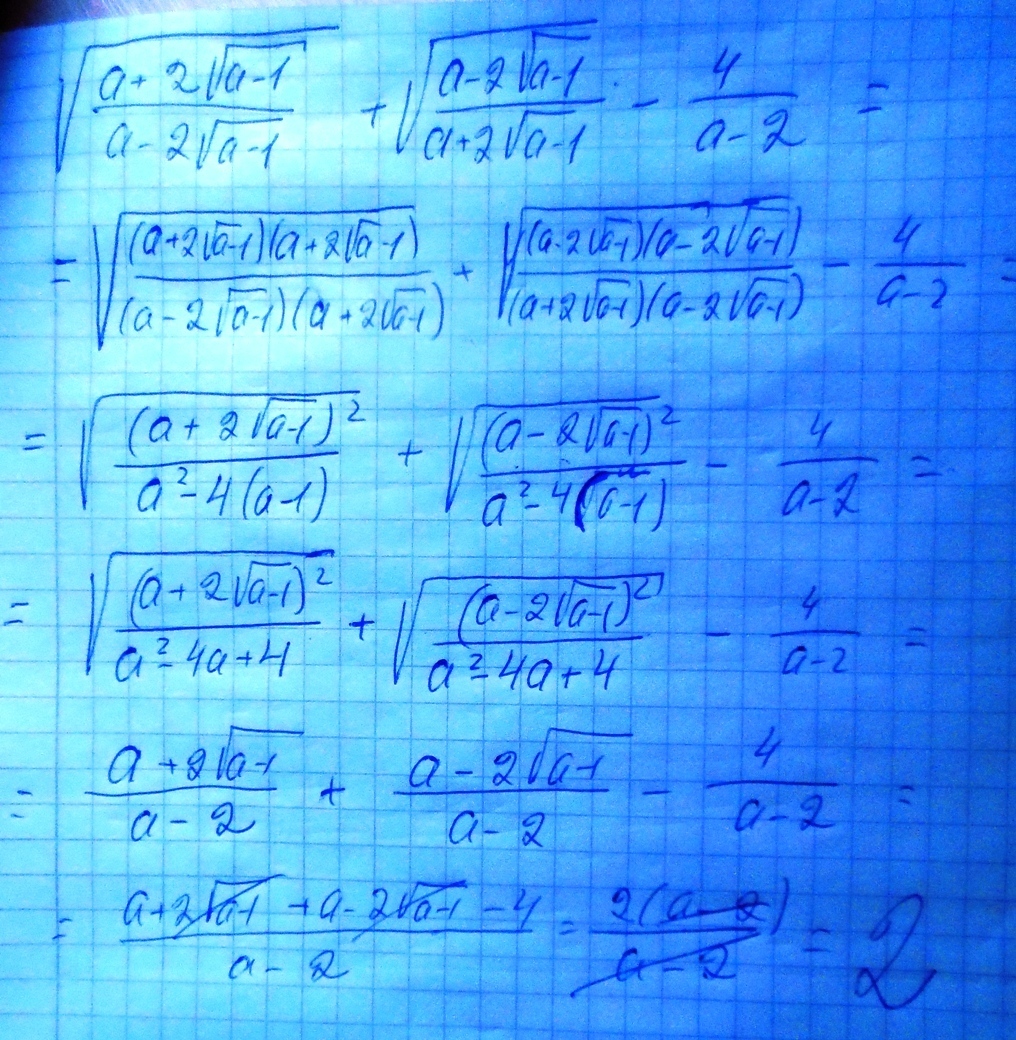 √((a+2√(a-1))/(a-2√(a-1))) + √((a-2√(a-1))/(a+2√(a-1))) - 4/(a-2) =
= √(((a+2√(a-1))(a+2√(a-1)))/((a-2√(a-1))(a+2√(a-1)))) + √(((a-2√(a-1))(a-2√(a-1)))/((a+2√(a-1))(a-2√(a-1)))) - 4/(a-2) =
= √((a+2√(a-1))²/(a²-4(a-1))) + √((a-2√(a-1))²/(a²-4(a-1))) - 4/(a-2) =
= √((a+2√(a-1))²/(a²-4a+4)) + √((a-2√(a-1))²/(a²-4a+4)) - 4/(a-2) =
= (a+2√(a-1))/(a-2) + (a-2√(a-1))/(a-2) - 4/(a-2) =
= (a+2√(a-1)+a-2√(a-1)-4)/(a-2) = 2(a-2)/(a-2) = 2